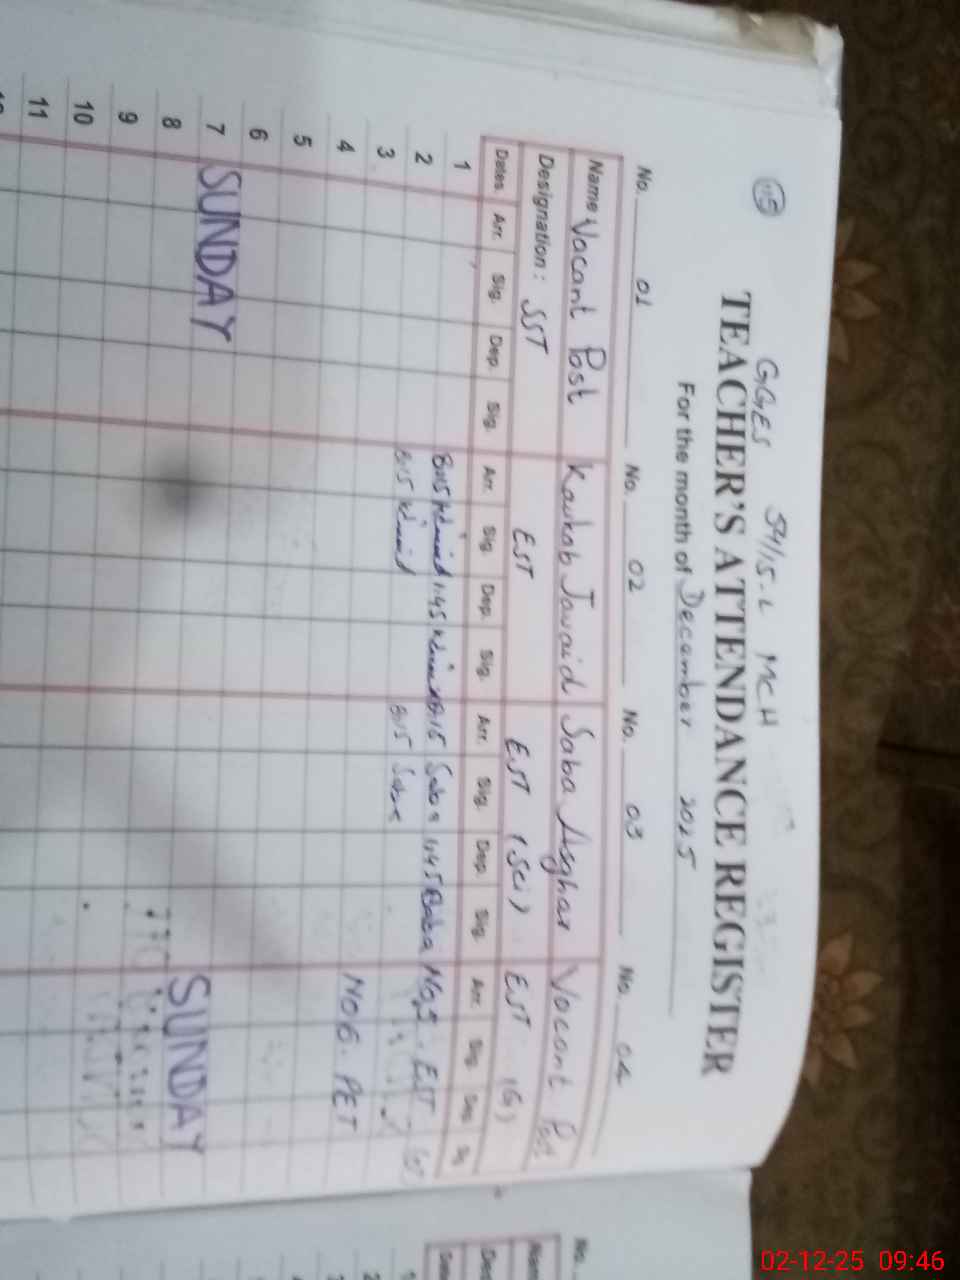 115
GGES 59/15-L MCH
TEACHER'S ATTENDANCE REGISTER
For the month of December 2025
No. 01 No. 02 No. 03 No. 04
Name: Vacant Post Kaukab Javaid Saba Asghar Vacant Post
Designation: SST EST EST (Sci) EST (G)
Dates. Arr. Sig. Dep. Sig. Arr. Sig. Dep. Sig. Arr. Sig. Dep. Sig. Arr. Sig. Dep.
1 8:15 1:45 8:15 Saba 1:45 Saba No5. EST
2 8:15 8:15 Saba
3
4 NO6. PET
5
6
7 SUNDAY SUNDAY
8
9
10
11
No.
02-12-25 09:46